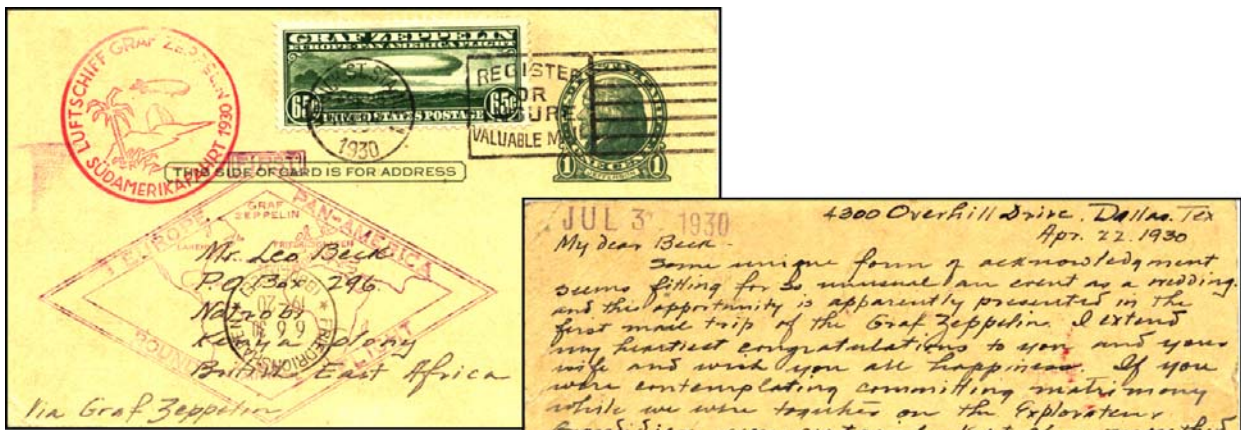 LUFTSCHIFF GRAF ZEPPELIN
SÜDAMERIKAFAHRT 1930
GRAF ZEPPELIN
EUROPE PAN-AMERICA FLIGHT
65¢ 65¢
UNITED STATES POSTAGE
1930
REGISTER
OR
INSURE
VALUABLE MAIL
1 1
JEFFERSON
FIRST
THIS SIDE OF CARD IS FOR ADDRESS
GRAF
ZEPPELIN
EUROPE
PAN-AMERICA
FLIGHT
FRIEDRICHSHAFEN
19-20
6 6 30
Mr. Leo Beck
P.O. Box 296.
Nairobi
Kenya Colony
British East Africa
Via Graf Zeppelin
JUL 3 1930
4300 Overhill Drive. Dallas. Tex
Apr. 22. 1930
My dear Beck -
Some unique form of acknowledgment
seems fitting for so unusual an event as a wedding.
and this opportunity is apparently presented in the
first mail trip of the Graf Zeppelin. I extend
my heartiest congratulations to you and your
wife and wish you all happiness. If you
were contemplating committing matrimony
while we were together on the Explorateur